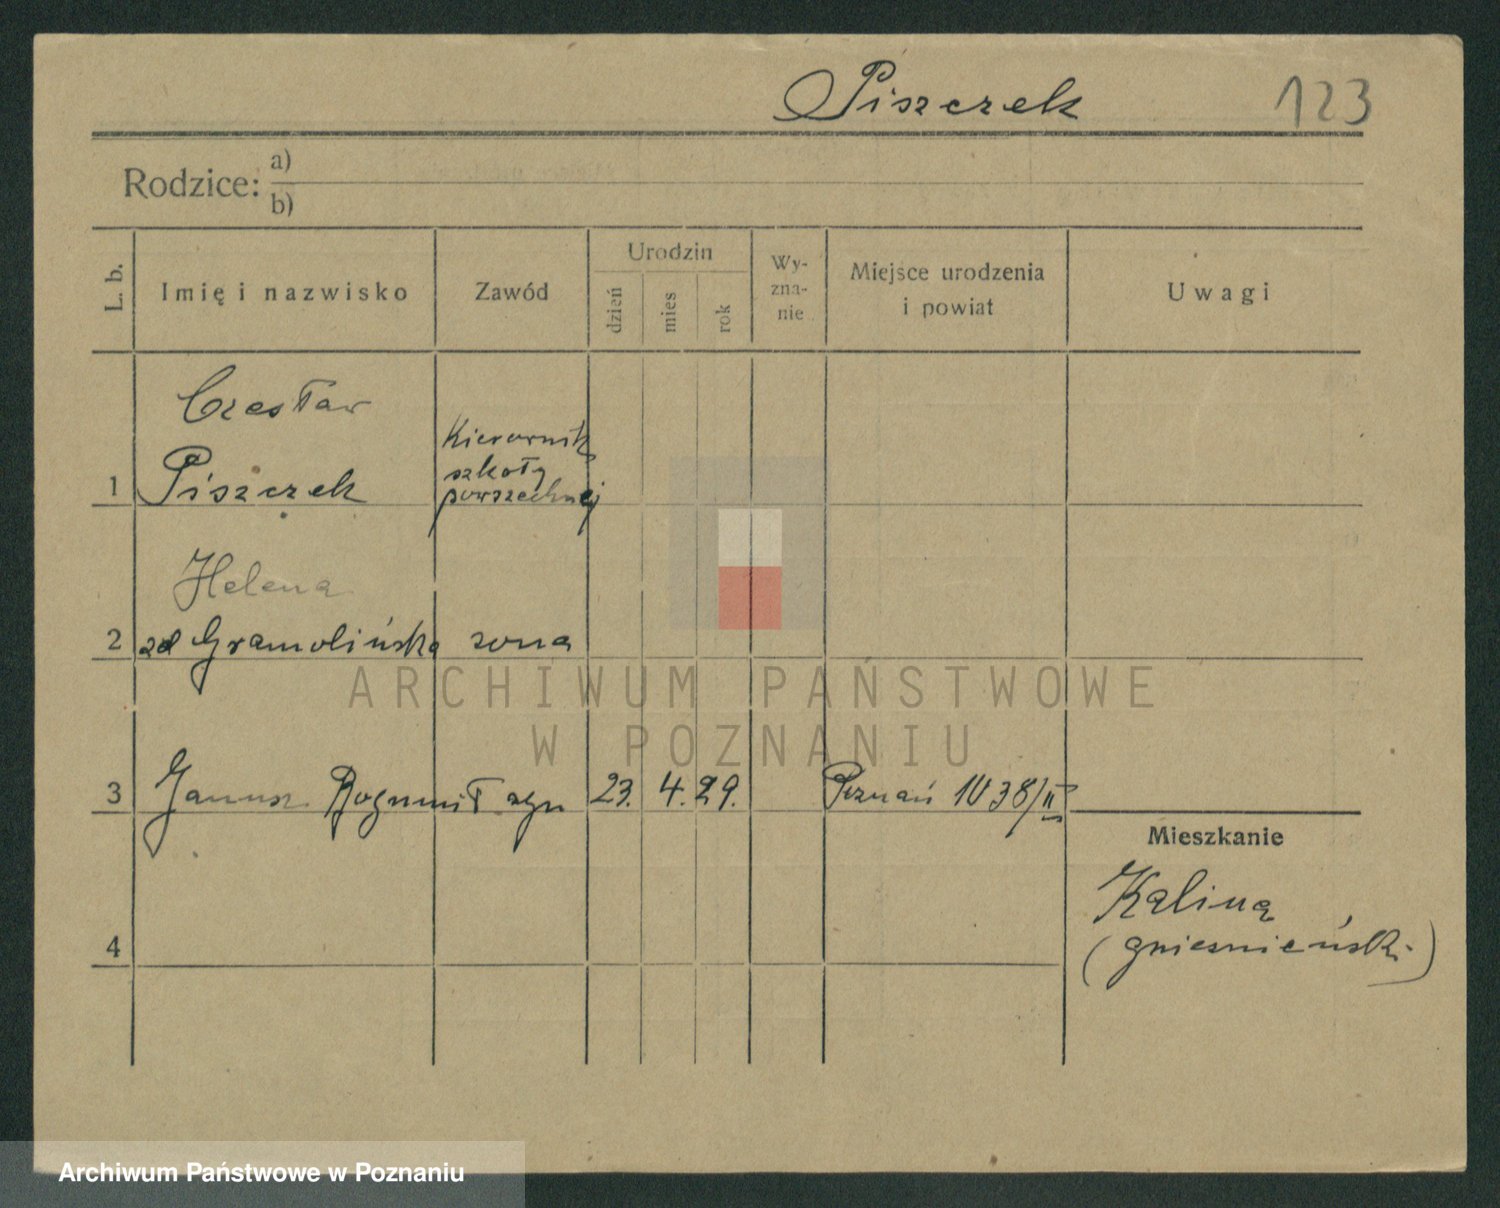 Piszczek 123
Rodzice: a)
b)
L. b. Imię i nazwisko Zawód Urodzin dzień mies rok Wy-zna-nie Miejsce urodzenia i powiat Uwagi
Czesław
Kierownik
szkoły
1 Piszczek powszechnej
Helena
2 zd Gramolińska zona
ARCHIWUM PAŃSTWOWE
W POZNANIU
3 Janusz Bogumił syn 23. 4. 29. Poznań 1038/II
Mieszkanie
Kalina
4 (gnieźnieńsk.)
Archiwum Państwowe w Poznaniu